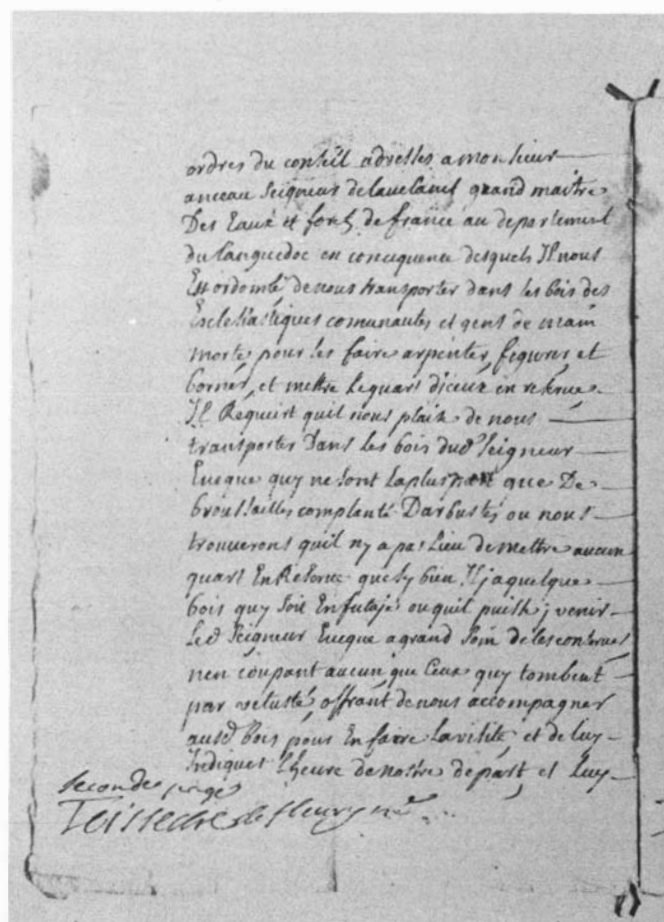 ordres du conseil adresses a monsieur
anceau seigneur de grand maitre
Des Eaux et forets de france au departement
du languedoc en consequence desquels Il nous
Est ordonné de nous transporter dans les bois des
Eclesiastiques comunautes et gens de main
morte pour les faire arpenter figurer et
borner, et mettre le quart diceux en reserve.
Il Requiert quil nous plaise de nous
transporter Dans les bois dud seigneur
Eveque quy ne sont la plus part que De
broussailles complanté Darbustes ou nous
trouverons quil ny a pas Lieu de mettre aucun
quart En Reserve que sy bien Il y a quelque
bois quy soit En futaje ou quil puisse j venir
Led seigneur Eveque a grand soin de les conserver
nen coupant aucun que Ceux quy tombent
par vetusté, offrant de nous accompagner
ausd bois pour En faire La visite, et de luy
Indiquer Lheure de nostre depart, et Luy
seconde page
Teissedre de fleury